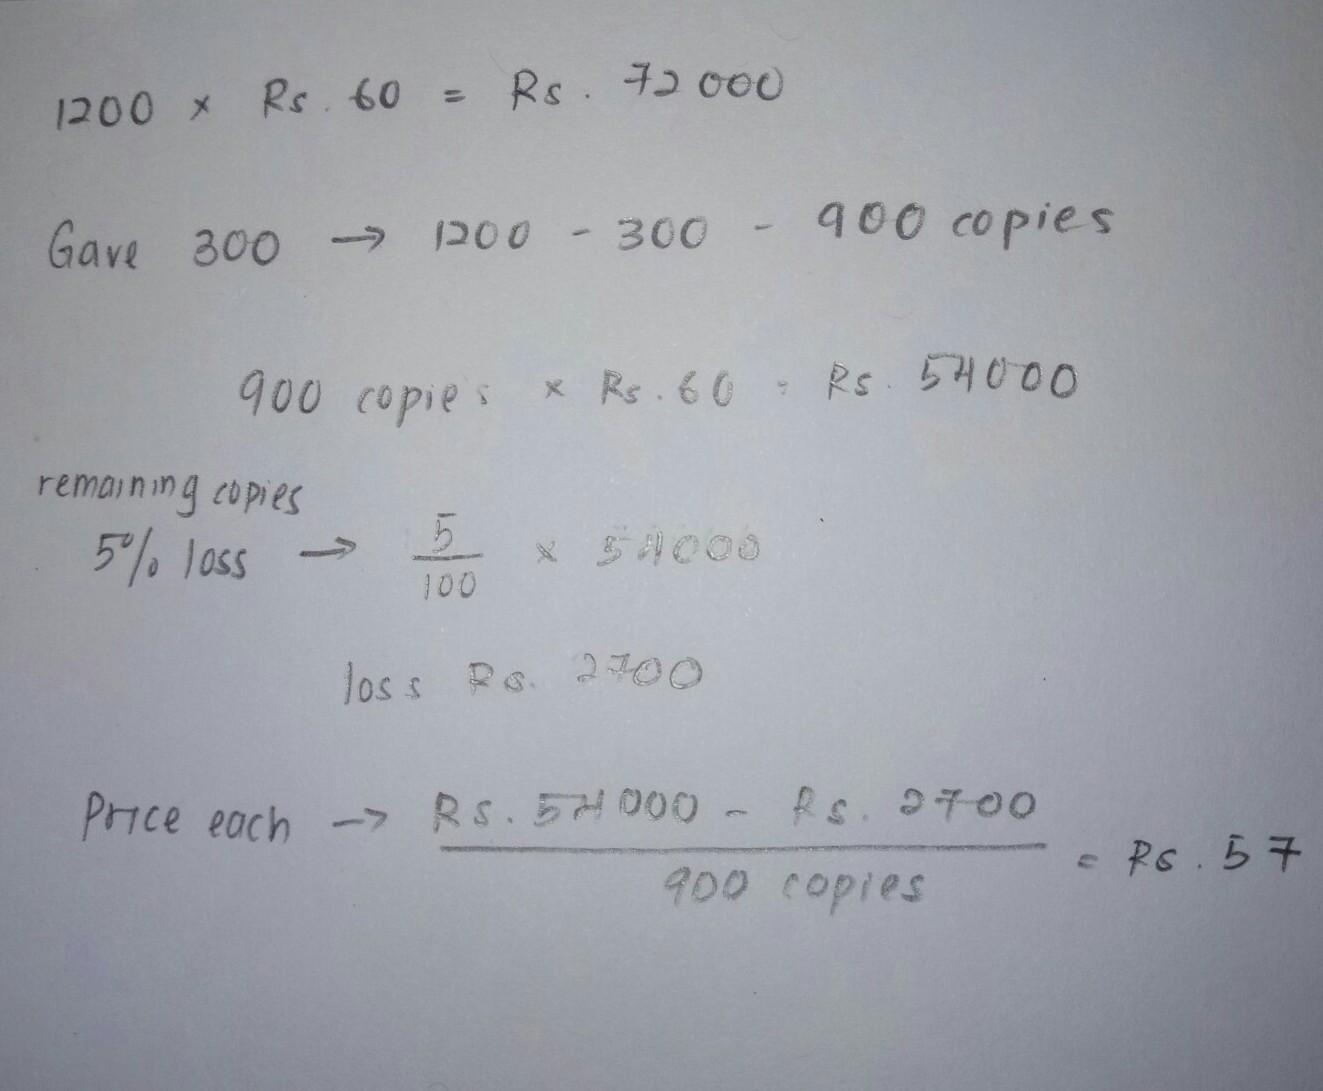 1200 × Rs. 60 = Rs. 72000
Gave 300 → 1200 - 300 - 900 copies
900 copies × Rs. 60 = Rs. 54000
remaining copies
5% loss → 5/100 × 54000
loss Rs. 2700
Price each → Rs. 54000 - Rs. 2700 / 900 copies = Rs. 57